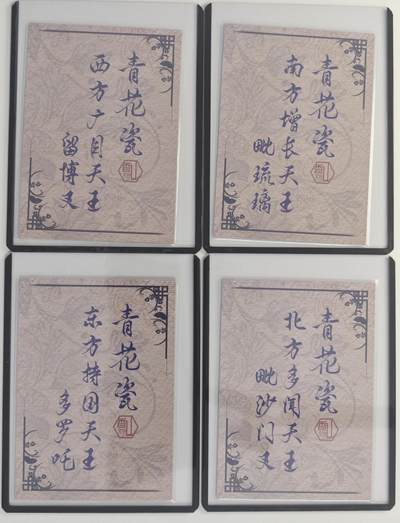 青花瓷
西方广目天王
留博叉
青花瓷
南方增长天王
毗琉璃
青花瓷
东方持国天王
多罗吒
青花瓷
北方多闻天王
毗沙门叉